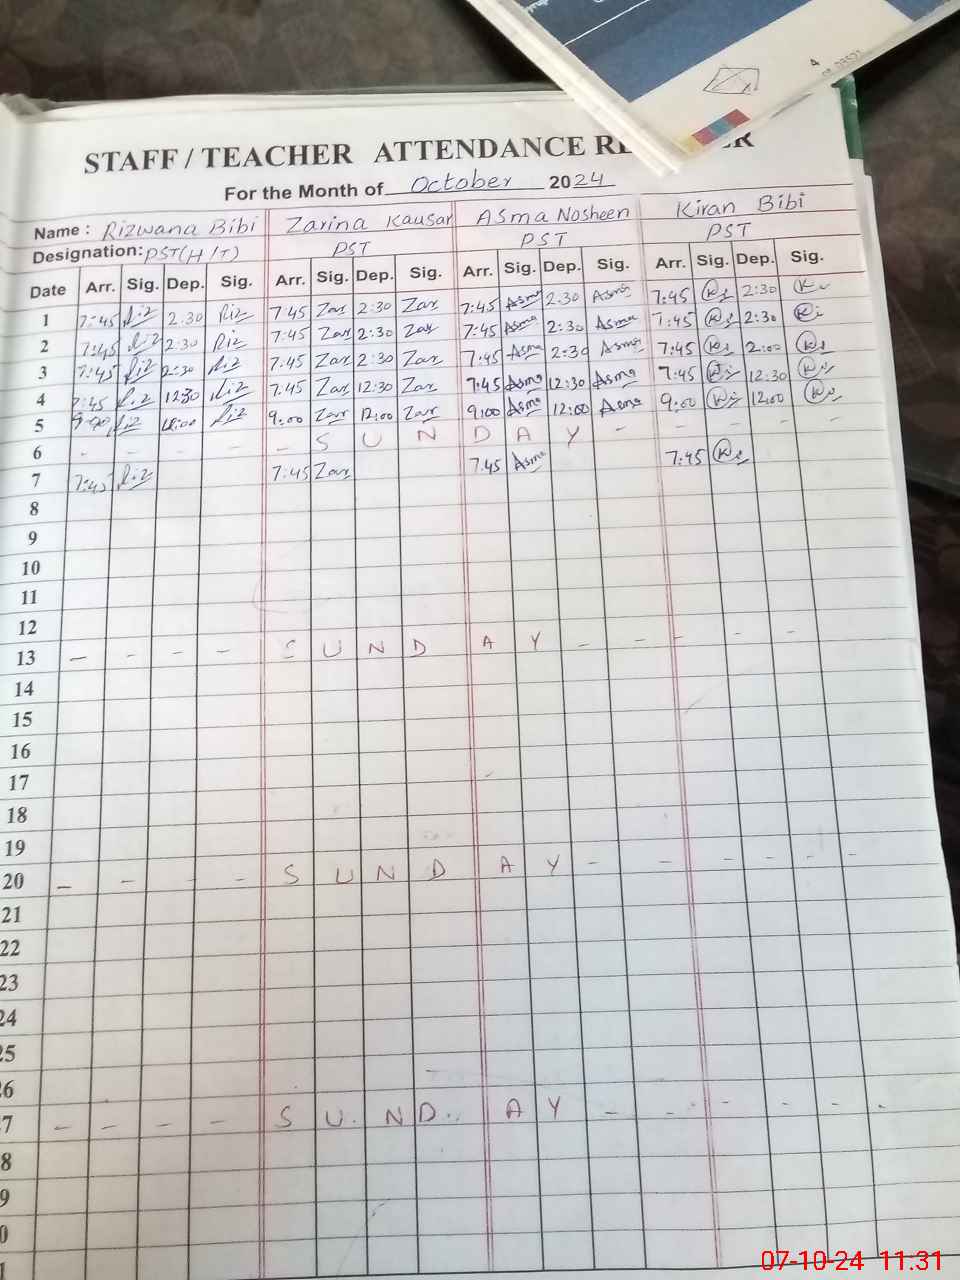 STAFF / TEACHER ATTENDANCE RE ER
For the Month of October 2024
Name : Rizwana Bibi Zarina Kausar Asma Nosheen Kiran Bibi
Designation: PST(H/T) PST PST PST
Date Arr. Sig. Dep. Sig. Arr. Sig. Dep. Sig. Arr. Sig. Dep. Sig. Arr. Sig. Dep. Sig.
1 7:45 Riz 2:30 Riz 7 45 Zar 2:30 Zar 7:45 Asma 2:30 Asma 7:45 2:30
2 7:45 Riz 2:30 Riz 7:45 Zar 2:30 Zar 7:45 Asma 2:30 Asma 7:45 2:30
3 7:45 Riz 2:30 Riz 7:45 Zar 2:30 Zar 7:45 Asma 2:30 Asma 7:45 2:00
4 7:45 Riz 12:30 Riz 7:45 Zar 12:30 Zar 7:45 Asma 12:30 Asma 7:45 12:30
5 9:00 Riz 12:00 Riz 9:00 Zar 12:00 Zar 9:00 Asma 12:00 Asma 9:00 12:00
6 - - - - - S U N D A Y - - - - -
7 7:45 Riz 7:45 Zar 7:45 Asma 7:45
8
9
10
11
12
13 - - - - S U N D A Y - - - - -
14
15
16
17
18
19
20 - - - - S U N D A Y - - - - - -
21
22
23
24
25
26
27 - - - - S U N D A Y - - - - - -
8
9
0
1
07-10-24 11:31